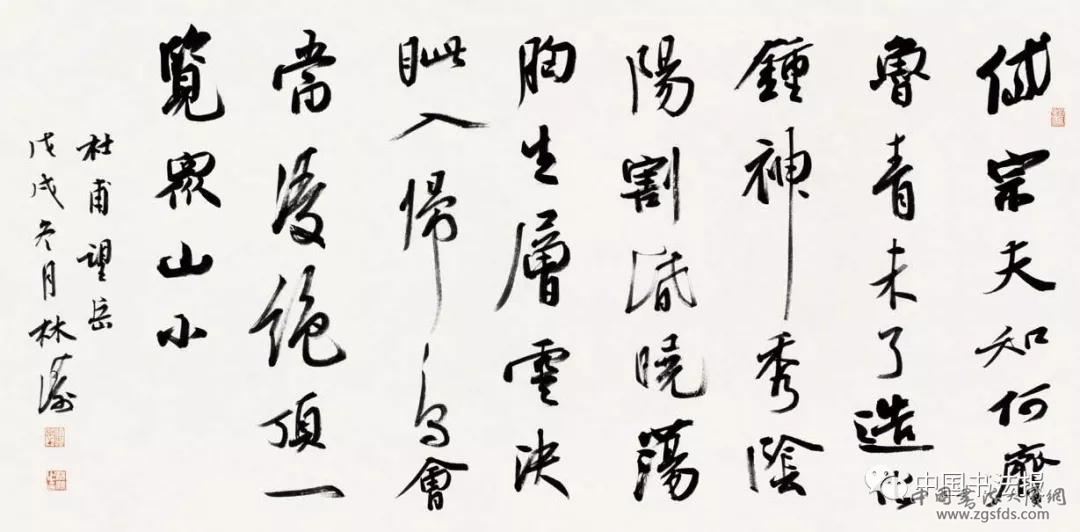 岱宗夫知何齊
魯青未了造化
鍾神秀陰
陽割昏曉蕩
胸生層雲決
眦入歸鳥會
當凌絕頂一
覽眾山小
杜甫望岳
戊戌冬月林
中国书法报
www.zgsfds.com